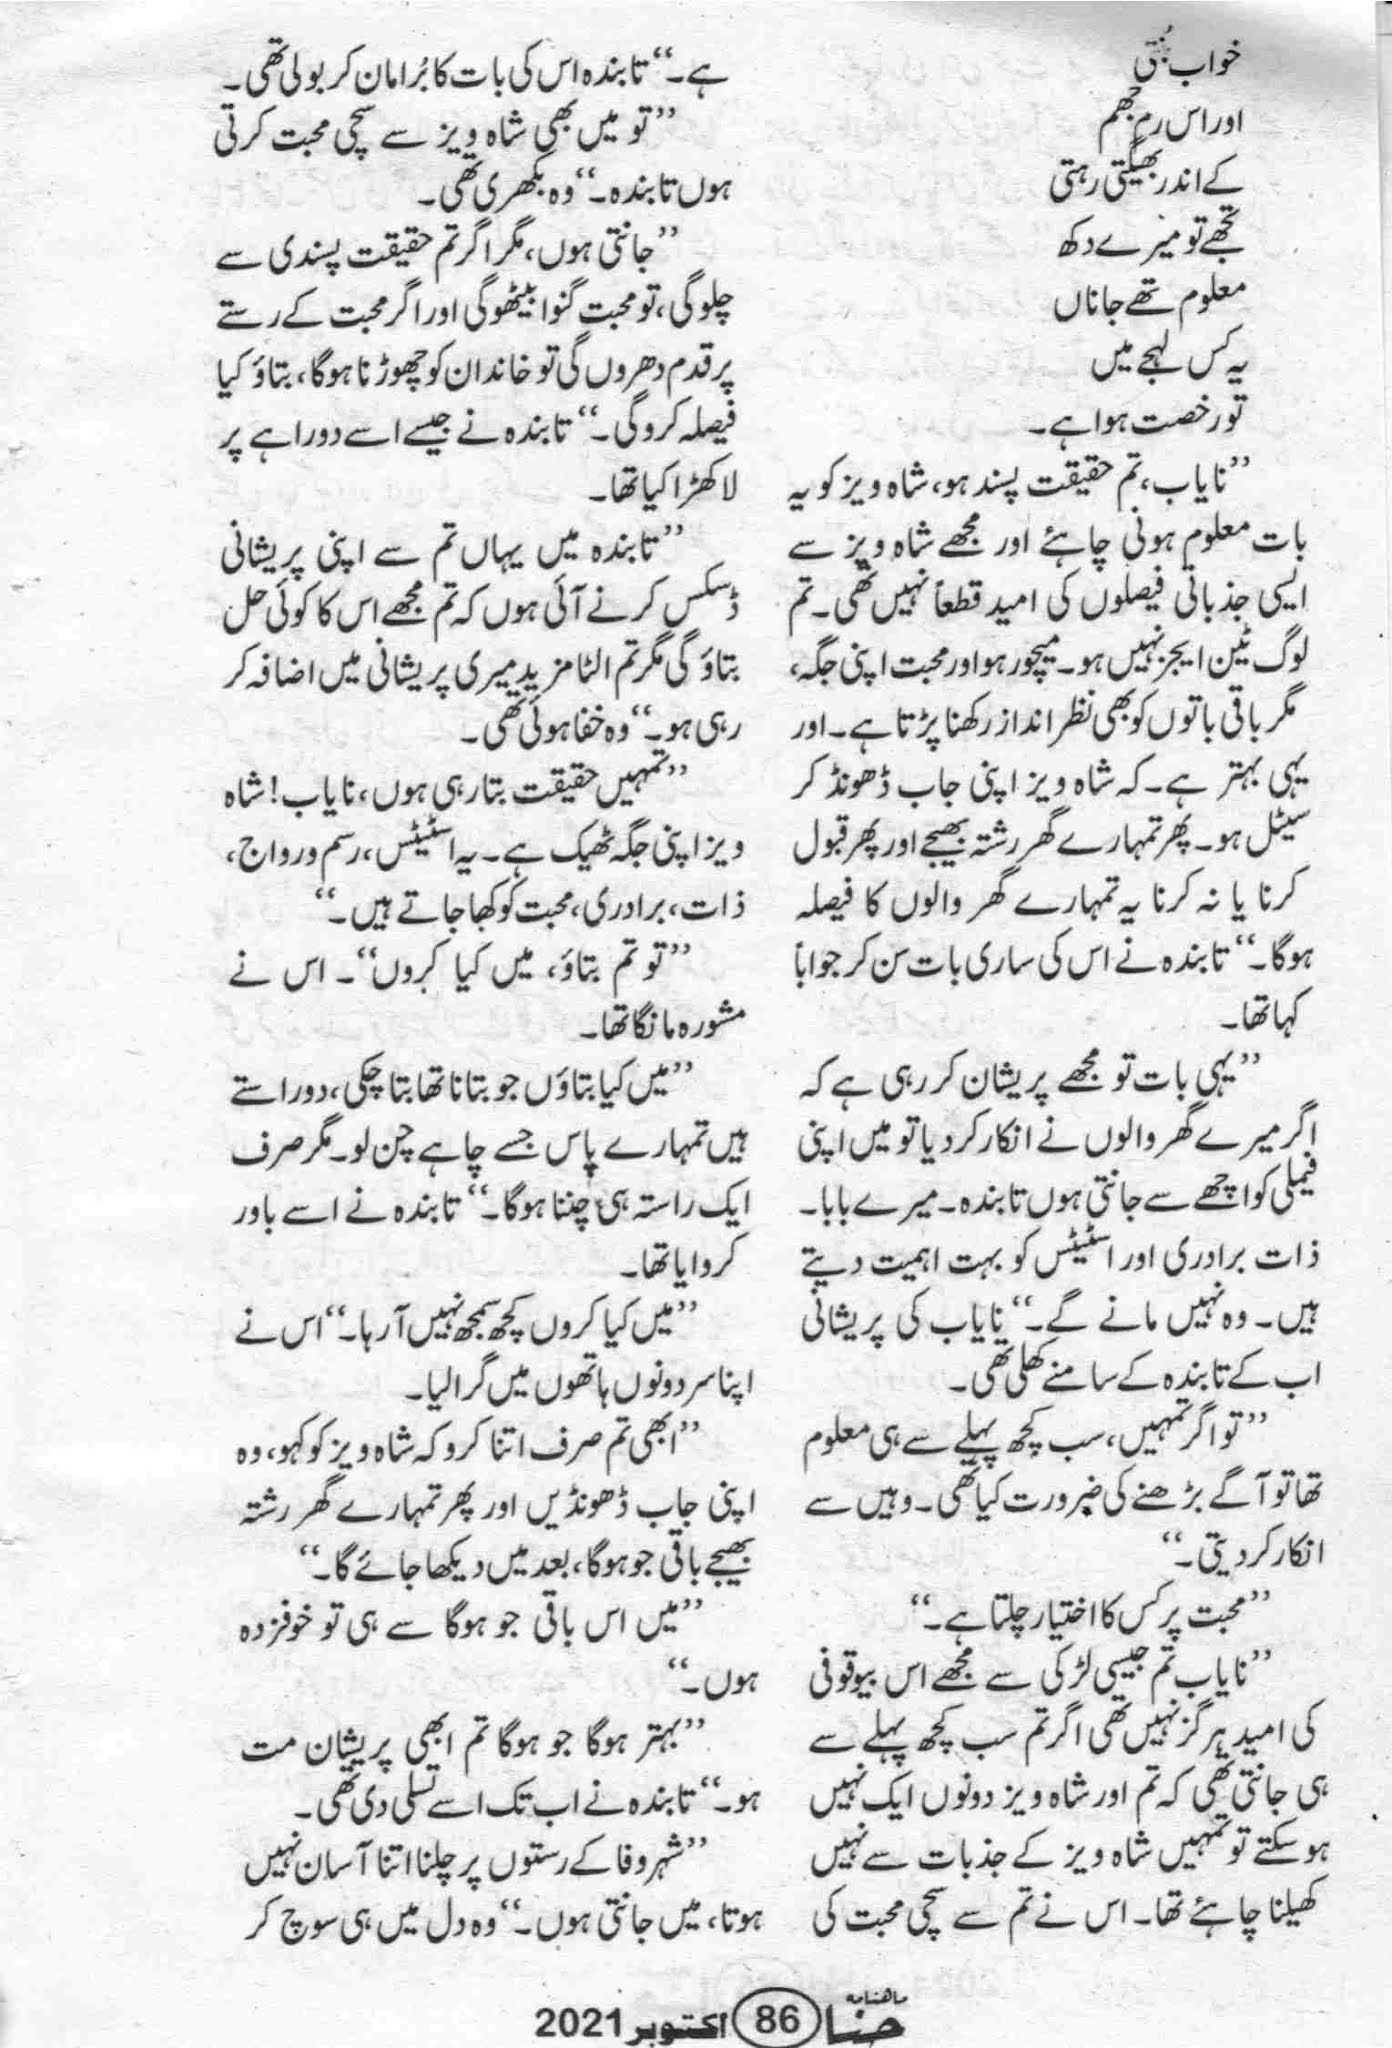 خواب بُنتی
اور اس رم جھم
کے اندر بھیگتی رہتی
تجھے تو میرے دکھ
معلوم تھے جاناں
یہ کس لہجے میں
تو رخصت ہوا ہے۔
’’نایاب، تم حقیقت پسند ہو، شاہ ویز کو یہ
بات معلوم ہونی چاہئے اور مجھے شاہ ویز سے
ایسی جذباتی فیصلوں کی امید قطعاً نہیں تھی۔ تم
لوگ ٹین ایجز نہیں ہو۔ میچور ہو اور محبت اپنی جگہ،
مگر باقی باتوں کو بھی نظر انداز رکھنا پڑتا ہے۔ اور
یہی بہتر ہے۔ کہ شاہ ویز اپنی جاب ڈھونڈ کر
سیٹل ہو۔ پھر تمہارے گھر رشتہ بھیجے اور پھر قبول
کرنا یا نہ کرنا یہ تمہارے گھر والوں کا فیصلہ
ہوگا۔‘‘ تابندہ نے اس کی ساری بات سن کر جواباً
کہا تھا۔
’’یہی بات تو مجھے پریشان کر رہی ہے کہ
اگر میرے گھر والوں نے انکار کر دیا تو میں اپنی
فیملی کو اچھے سے جانتی ہوں تابندہ۔ میرے بابا۔
ذات برادری اور اسٹیٹس کو بہت اہمیت دیتے
ہیں۔ وہ نہیں مانے گے۔‘‘ نایاب کی پریشانی
اب کے تابندہ کے سامنے کھلی تھی۔
’’تو اگر تمہیں، سب کچھ پہلے سے ہی معلوم
تھا تو آگے بڑھنے کی ضرورت کیا تھی۔ وہیں سے
انکار کر دیتی۔‘‘
’’محبت پر کس کا اختیار چلتا ہے۔‘‘
’’نایاب تم جیسی لڑکی سے مجھے اس بیوقوفی
کی امید ہرگز نہیں تھی اگر تم سب کچھ پہلے سے
ہی جانتی تھی کہ تم اور شاہ ویز دونوں ایک نہیں
ہو سکتے تو تمہیں شاہ ویز کے جذبات سے نہیں
کھیلنا چاہئے تھا۔ اس نے تم سے سچی محبت کی
ہے۔‘‘ تابندہ اس کی بات کا بُرا مان کر بولی تھی۔
’’تو میں بھی شاہ ویز سے سچی محبت کرتی
ہوں تابندہ۔‘‘ وہ بکھری تھی۔
’’جانتی ہوں، مگر اگر تم حقیقت پسندی سے
چلو گی، تو محبت گنوا بیٹھو گی اور اگر محبت کے رستے
پر قدم دھروں گی تو خاندان کو چھوڑنا ہوگا، بتاؤ کیا
فیصلہ کرو گی۔‘‘ تابندہ نے جیسے اسے دوراہے پر
لا کھڑا کیا تھا۔
’’تابندہ میں یہاں تم سے اپنی پریشانی
ڈسکس کرنے آئی ہوں کہ تم مجھے اس کا کوئی حل
بتاؤ گی مگر تم الٹا مزید میری پریشانی میں اضافہ کر
رہی ہو۔‘‘ وہ خفا ہوئی تھی۔
’’تمہیں حقیقت بتا رہی ہوں، نایاب! شاہ
ویز اپنی جگہ ٹھیک ہے۔ یہ اسٹیٹس، رسم و رواج،
ذات، برادری، محبت کو کھا جاتے ہیں۔‘‘
’’تو تم بتاؤ، میں کیا کروں‘‘۔ اس نے
مشورہ مانگا تھا۔
’’میں کیا بتاؤں جو بتانا تھا بتا چکی، دو راستے
ہیں تمہارے پاس جسے چاہے چن لو۔ مگر صرف
ایک راستہ ہی چننا ہوگا۔‘‘ تابندہ نے اسے باور
کروایا تھا۔
’’میں کیا کروں کچھ سمجھ نہیں آ رہا۔‘‘ اس نے
اپنا سر دونوں ہاتھوں میں گرا لیا۔
’’ابھی تم صرف اتنا کرو کہ شاہ ویز کو کہو، وہ
اپنی جاب ڈھونڈیں اور پھر تمہارے گھر رشتہ
بھیجے باقی جو ہوگا، بعد میں دیکھا جائے گا۔‘‘
’’میں اس باقی جو ہوگا سے ہی تو خوفزدہ
ہوں۔‘‘
’’بہتر ہوگا جو ہوگا تم ابھی پریشان مت
ہو۔‘‘ تابندہ نے اب تک اسے تسلی دی تھی۔
’’شہر وفا کے رستوں پر چلنا اتنا آسان نہیں
ہوتا، میں جانتی ہوں۔‘‘ وہ دل میں ہی سوچ کر
ماہنامہ حنا 86 اکتوبر 2021